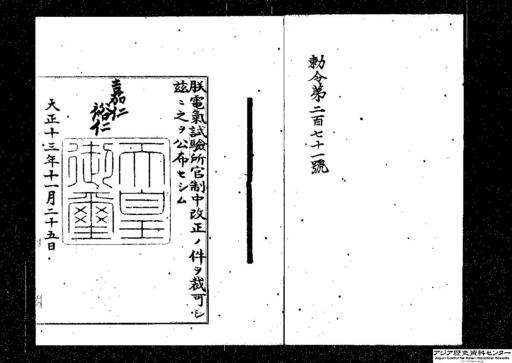 勅令第二百七十一號
朕電氣試驗所官制中改正ノ件ヲ裁可シ
茲ニ之ヲ公布セシム
嘉仁
裕仁
天皇
御璽
大正十三年十一月二十五日
アジア歴史資料センター
Japan Center for Asian Historical Records